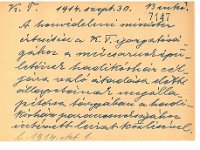 K. T. 1914. szept. 30. Binkó.
7197
A honvédelmi miniszter
átirata a K. T. igazgatósá-
gához a műcsarnok épü-
letének hadikórház cél-
jára való átadása előtti
állapotának megálla-
pítása tárgyában a hadi-
kórház parancsnokságához
intézett leirat közlésével.
1914. okt. 1.